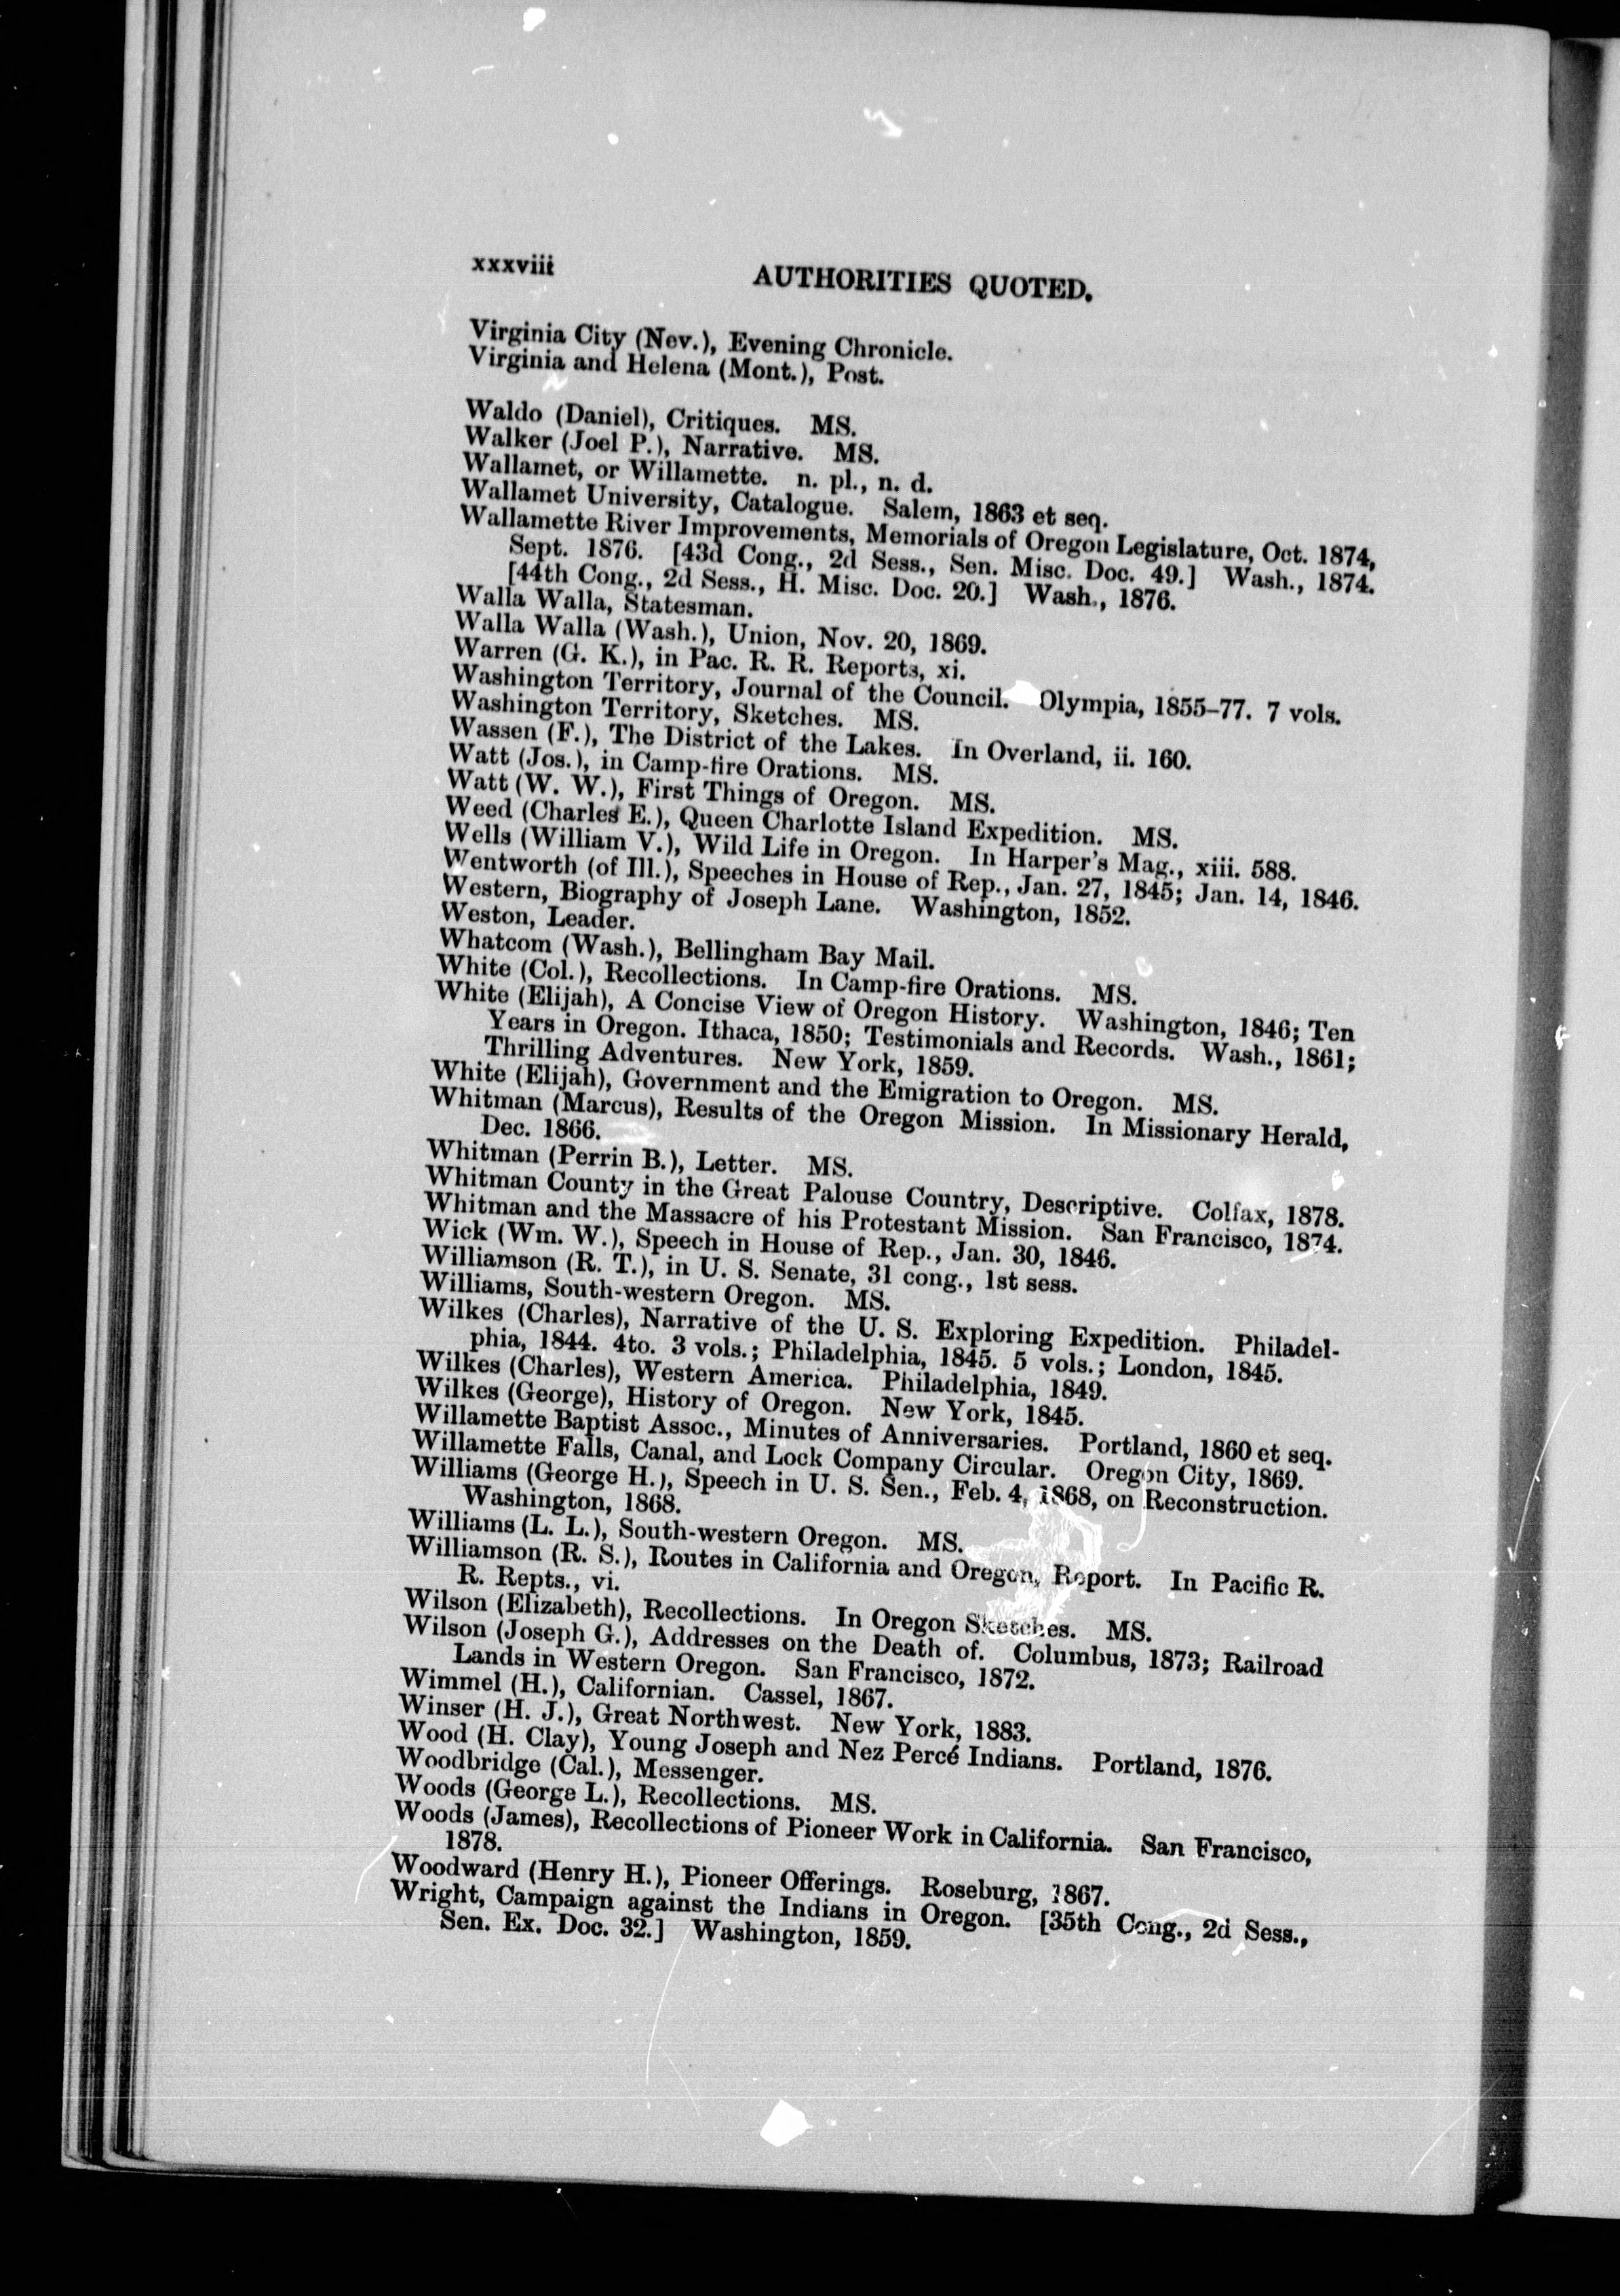 xxxviii
AUTHORITIES QUOTED.
Virginia City (Nev.), Evening Chronicle.
Virginia and Helena (Mont.), Post.
Waldo (Daniel), Critiques. MS.
Walker (Joel P.), Narrative. MS.
Wallamet, or Willamette. n. pl., n. d.
Wallamet University, Catalogue. Salem, 1863 et seq.
Wallamette River Improvements, Memorials of Oregon Legislature, Oct. 1874,
Sept. 1876. [43d Cong., 2d Sess., Sen. Misc. Doc. 49.] Wash., 1874.
[44th Cong., 2d Sess., H. Misc. Doc. 20.] Wash., 1876.
Walla Walla, Statesman.
Walla Walla (Wash.), Union, Nov. 20, 1869.
Warren (G. K.), in Pac. R. R. Reports, xi.
Washington Territory, Journal of the Council. Olympia, 1855–77. 7 vols.
Washington Territory, Sketches. MS.
Wassen (F.), The District of the Lakes. In Overland, ii. 160.
Watt (Jos.), in Camp-fire Orations. MS.
Watt (W. W.), First Things of Oregon. MS.
Weed (Charles E.), Queen Charlotte Island Expedition. MS.
Wells (William V.), Wild Life in Oregon. In Harper's Mag., xiii. 588.
Wentworth (of Ill.), Speeches in House of Rep., Jan. 27, 1845; Jan. 14, 1846.
Western, Biography of Joseph Lane. Washington, 1852.
Weston, Leader.
Whatcom (Wash.), Bellingham Bay Mail.
White (Col.), Recollections. In Camp-fire Orations. MS.
White (Elijah), A Concise View of Oregon History. Washington, 1846; Ten
Years in Oregon. Ithaca, 1850; Testimonials and Records. Wash., 1861;
Thrilling Adventures. New York, 1859.
White (Elijah), Government and the Emigration to Oregon. MS.
Whitman (Marcus), Results of the Oregon Mission. In Missionary Herald,
Dec. 1866.
Whitman (Perrin B.), Letter. MS.
Whitman County in the Great Palouse Country, Descriptive. Colfax, 1878.
Whitman and the Massacre of his Protestant Mission. San Francisco, 1874.
Wick (Wm. W.), Speech in House of Rep., Jan. 30, 1846.
Williamson (R. T.), in U. S. Senate, 31 cong., 1st sess.
Williams, South-western Oregon. MS.
Wilkes (Charles), Narrative of the U. S. Exploring Expedition. Philadel-
phia, 1844. 4to. 3 vols.; Philadelphia, 1845. 5 vols.; London, 1845.
Wilkes (Charles), Western America. Philadelphia, 1849.
Wilkes (George), History of Oregon. New York, 1845.
Willamette Baptist Assoc., Minutes of Anniversaries. Portland, 1860 et seq.
Willamette Falls, Canal, and Lock Company Circular. Oregon City, 1869.
Williams (George H.), Speech in U. S. Sen., Feb. 4, 1868, on Reconstruction.
Washington, 1868.
Williams (L. L.), South-western Oregon. MS.
Williamson (R. S.), Routes in California and Oregon, Report. In Pacific R.
R. Repts., vi.
Wilson (Elizabeth), Recollections. In Oregon Sketches. MS.
Wilson (Joseph G.), Addresses on the Death of. Columbus, 1873; Railroad
Lands in Western Oregon. San Francisco, 1872.
Wimmel (H.), Californian. Cassel, 1867.
Winser (H. J.), Great Northwest. New York, 1883.
Wood (H. Clay), Young Joseph and Nez Percé Indians. Portland, 1876.
Woodbridge (Cal.), Messenger.
Woods (George L.), Recollections. MS.
Woods (James), Recollections of Pioneer Work in California. San Francisco,
1878.
Woodward (Henry H.), Pioneer Offerings. Roseburg, 1867.
Wright, Campaign against the Indians in Oregon. [35th Cong., 2d Sess.,
Sen. Ex. Doc. 32.] Washington, 1859.